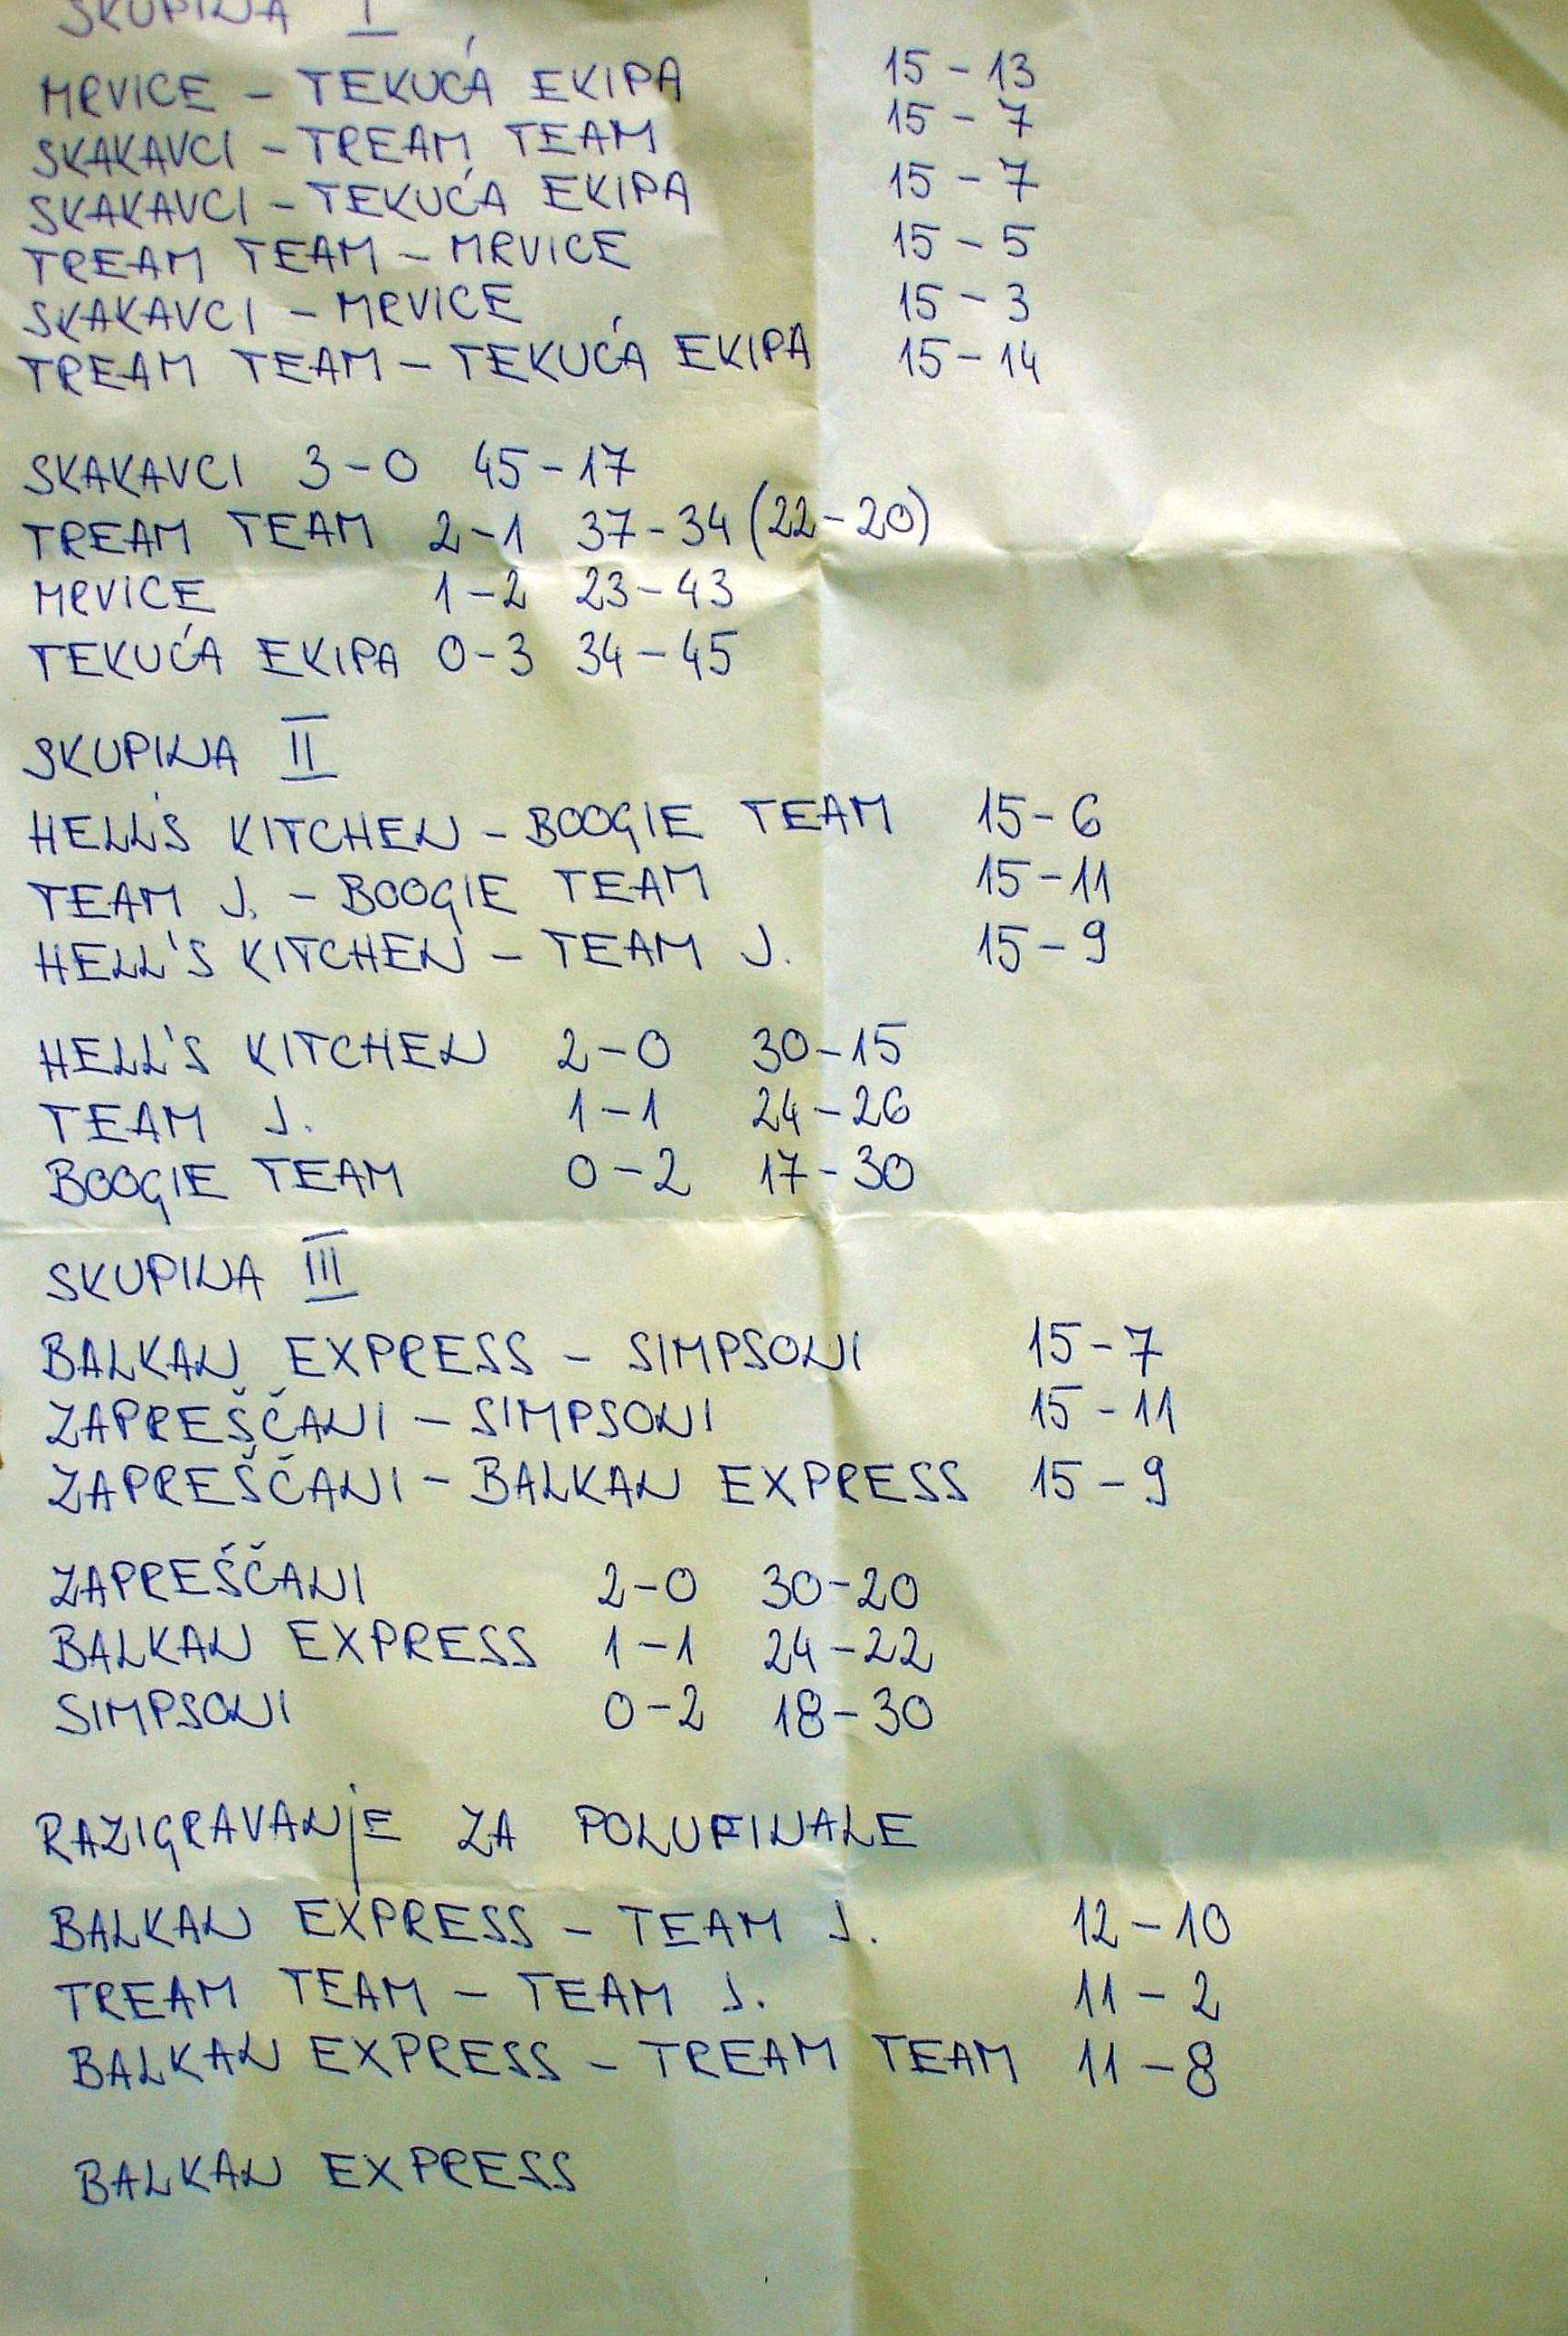 SKUPINA I
MRVICE - TEKUĆA EKIPA 15 - 13
SKAKAVCI - TREAM TEAM 15 - 7
SKAKAVCI - TEKUĆA EKIPA 15 - 7
TREAM TEAM - MRVICE 15 - 5
SKAKAVCI - MRVICE 15 - 3
TREAM TEAM - TEKUĆA EKIPA 15 - 14
SKAKAVCI 3 - 0 45 - 17
TREAM TEAM 2 - 1 37 - 34 (22 - 20)
MRVICE 1 - 2 23 - 43
TEKUĆA EKIPA 0 - 3 34 - 45
SKUPINA II
HELL'S KITCHEN - BOOGIE TEAM 15 - 6
TEAM J. - BOOGIE TEAM 15 - 11
HELL'S KITCHEN - TEAM J. 15 - 9
HELL'S KITCHEN 2 - 0 30 - 15
TEAM J. 1 - 1 24 - 26
BOOGIE TEAM 0 - 2 17 - 30
SKUPINA III
BALKAN EXPRESS - SIMPSONI 15 - 7
ZAPREŠČANI - SIMPSONI 15 - 11
ZAPREŠČANI - BALKAN EXPRESS 15 - 9
ZAPREŠČANI 2 - 0 30 - 20
BALKAN EXPRESS 1 - 1 24 - 22
SIMPSONI 0 - 2 18 - 30
RAZIGRAVANjE ZA POLUFINALE
BALKAN EXPRESS - TEAM J. 12 - 10
TREAM TEAM - TEAM J. 11 - 2
BALKAN EXPRESS - TREAM TEAM 11 - 8
BALKAN EXPRESS